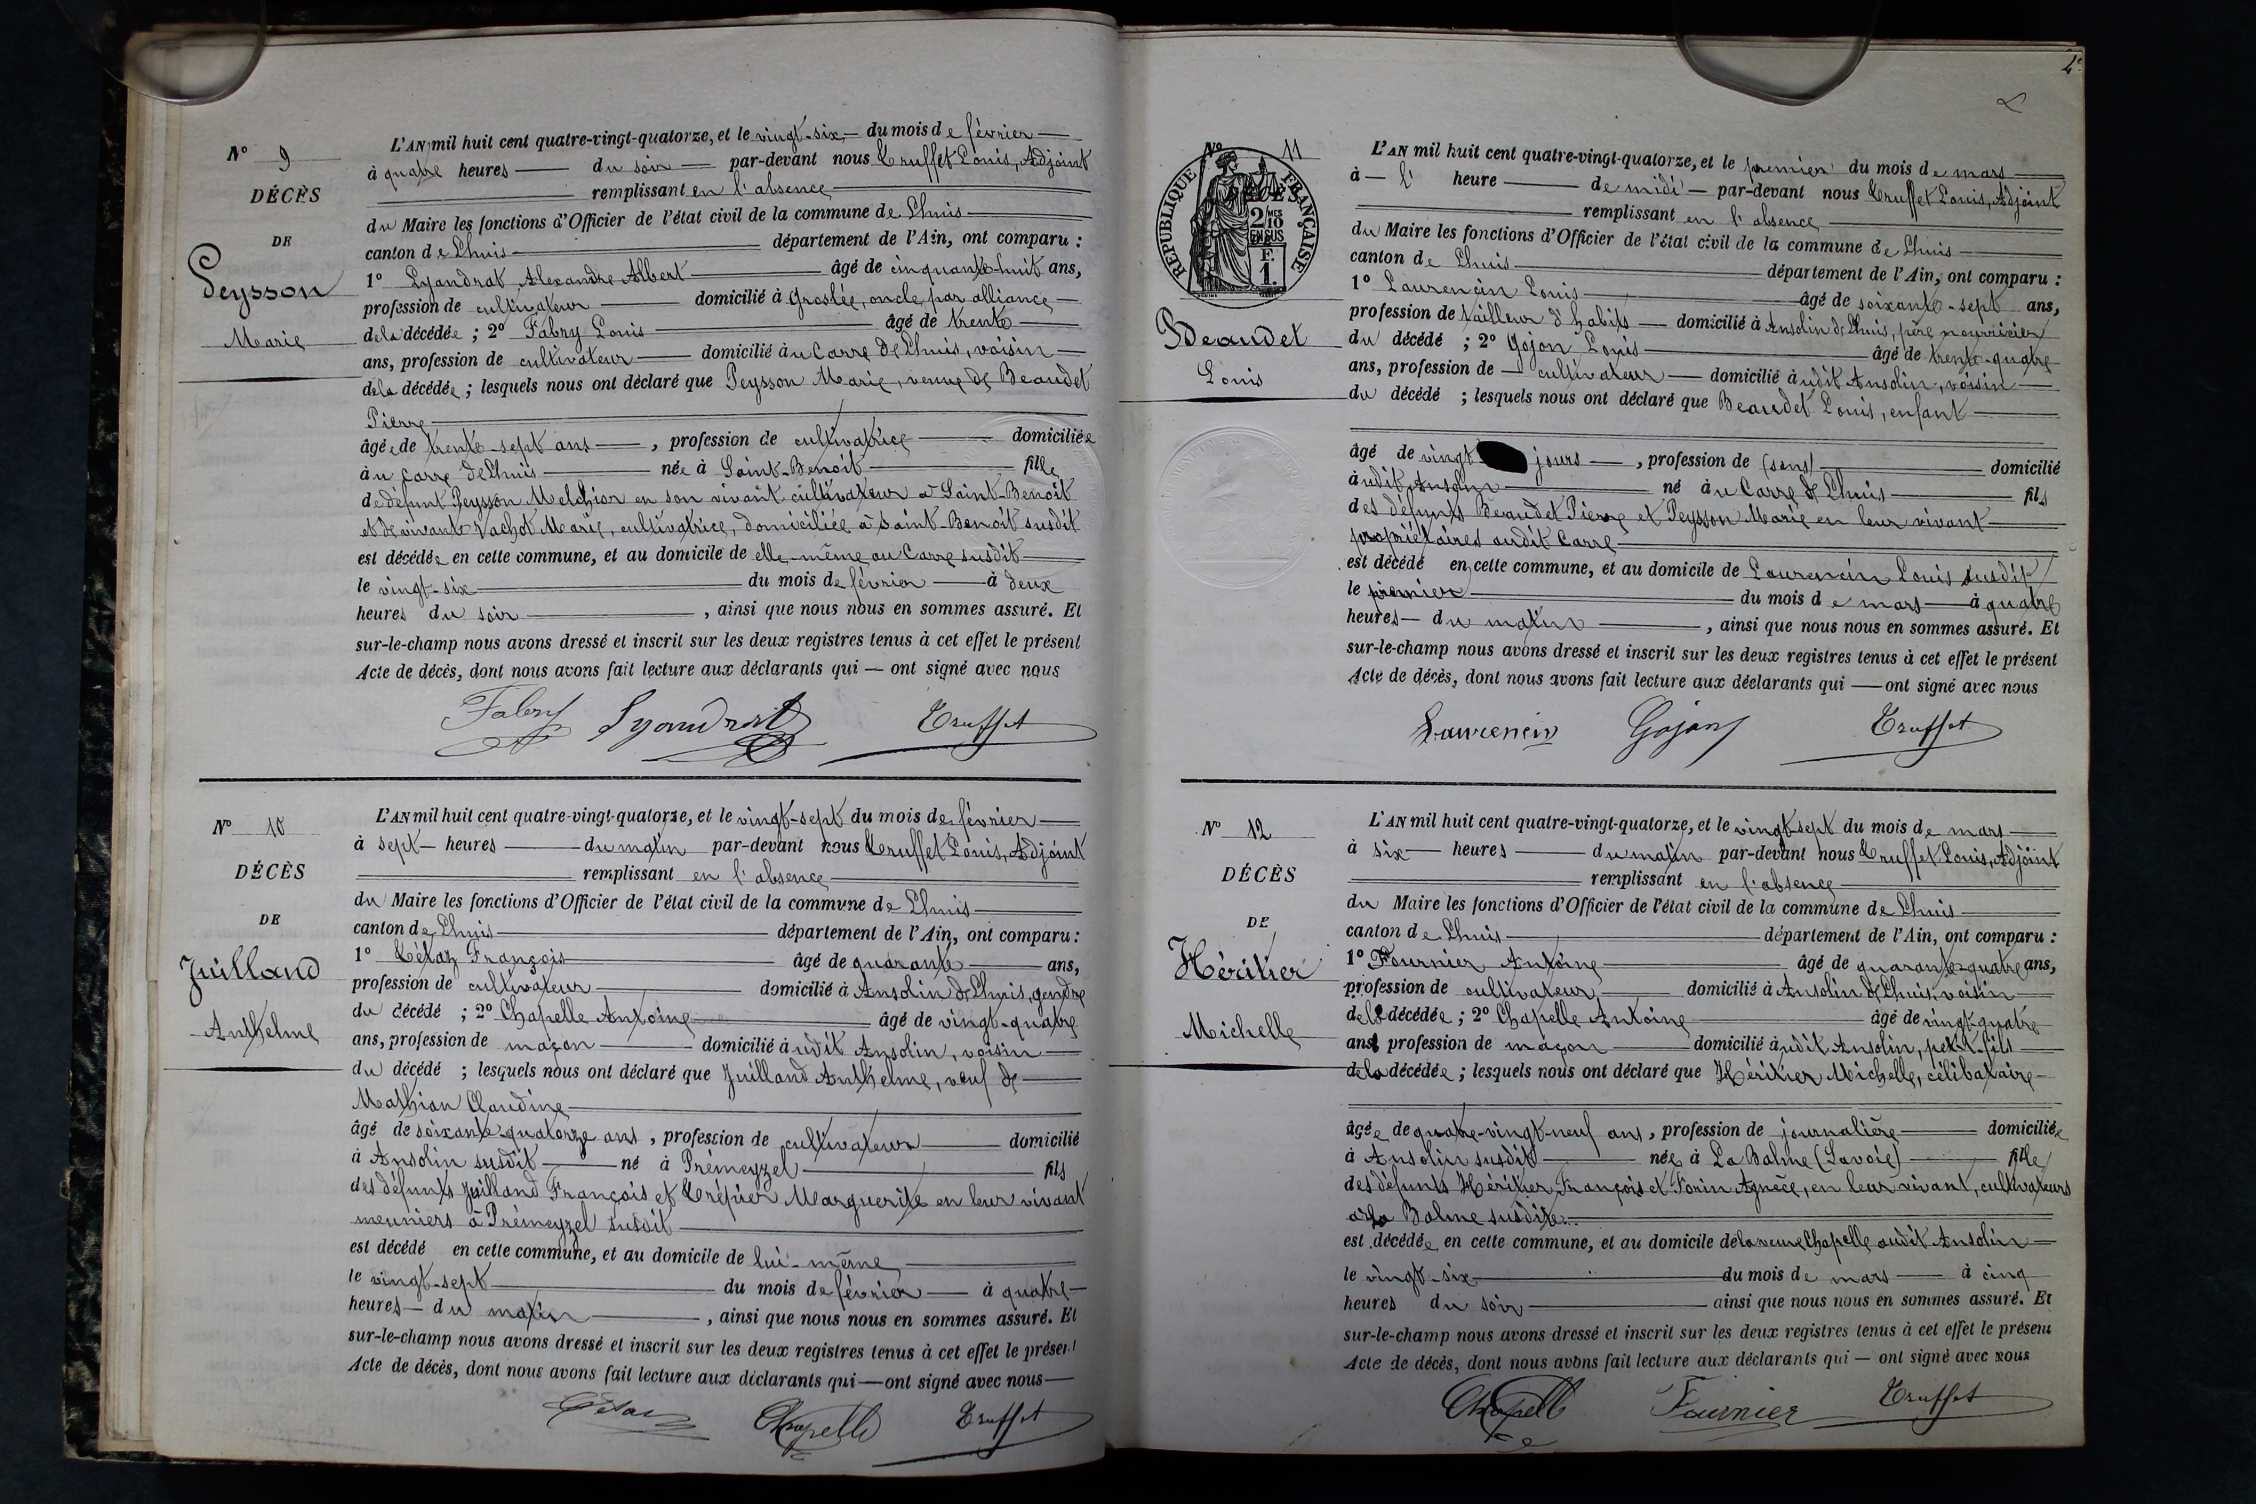 N° 9
DÉCÈS
DE
Peysson
Marie
L'AN mil huit cent quatre-vingt-quatorze, et le vingt-six du mois de février
à quatre heures du soir par-devant nous Truffet Louis, Adjoint
remplissant en l'absence
du Maire les fonctions d'Officier de l'état civil de la commune de Lhuis
canton de Lhuis département de l'Ain, ont comparu :
1° Lyandrat Alexandre Albert âgé de cinquante-huit ans,
profession de cultivateur domicilié à Groslée, oncle par alliance
de la décédée ; 2° Fabry Louis âgé de trente
ans, profession de cultivateur domicilié au Carre de Lhuis, voisin
de la décédée ; lesquels nous ont déclaré que Peysson Marie, veuve de Beaudet
Pierre
âgée de trente-sept ans , profession de cultivatrice domiciliée
au Carre de Lhuis née à Saint-Benoit fille
de défunt Peysson Melchior en son vivant cultivateur à Saint-Benoit
et de vivante Vachot Marie, cultivatrice, domiciliée à Saint-Benoit susdit
est décédée en cette commune, et au domicile de elle-même au Carre susdit
le vingt-six du mois de février à deux
heures du soir , ainsi que nous nous en sommes assuré. Et
sur-le-champ nous avons dressé et inscrit sur les deux registres tenus à cet effet le présent
Acte de décès, dont nous avons fait lecture aux déclarants qui — ont signé avec nous
Fabry Lyandrat Truffet
N° 10
DÉCÈS
DE
Juilland
Anthelme
L'AN mil huit cent quatre-vingt-quatorze, et le vingt-sept du mois de février
à sept heures du matin par-devant nous Truffet Louis, Adjoint
remplissant en l'absence
du Maire les fonctions d'Officier de l'état civil de la commune de Lhuis
canton de Lhuis département de l'Ain, ont comparu :
1° Tétaz François âgé de quarante ans,
profession de cultivateur domicilié à Ansolin de Lhuis, gendre
du décédé ; 2° Chapelle Antoine âgé de vingt-quatre
ans, profession de maçon domicilié audit Ansolin, voisin
du décédé ; lesquels nous ont déclaré que Juilland Anthelme, veuf de
Mathian Claudine
âgé de soixante-quatorze ans , profession de cultivateur domicilié
à Ansolin susdit né à Prémeyzel fils
des défunts Juilland François et Trépier Marguerite en leur vivant
meuniers à Prémeyzel susdit
est décédé en cette commune, et au domicile de lui-même
le vingt-sept du mois de février à quatre
heures du matin , ainsi que nous nous en sommes assuré. Et
sur-le-champ nous avons dressé et inscrit sur les deux registres tenus à cet effet le présent
Acte de décès, dont nous avons fait lecture aux déclarants qui — ont signé avec nous
Tétaz Chapelle Truffet
4e
N° 11
DÉCÈS
RÉPUBLIQUE FRANÇAISE
2 MES 10 EN SUS
F. 1.
Beaudet
Louis
L'AN mil huit cent quatre-vingt-quatorze, et le premier du mois de mars
à l' heure de midi par-devant nous Truffet Louis, Adjoint
remplissant en l'absence
du Maire les fonctions d'Officier de l'état civil de la commune de Lhuis
canton de Lhuis département de l'Ain, ont comparu :
1° Laurencin Louis âgé de soixante-sept ans,
profession de tailleur d'habits domicilié à Ansolin de Lhuis, père nourricier
du décédé ; 2° Gojon Louis âgé de trente-quatre
ans, profession de cultivateur domicilié audit Ansolin, voisin
du décédé ; lesquels nous ont déclaré que Beaudet Louis, enfant
âgé de vingt jours , profession de (sans) domicilié
audit Ansolin né au Carre de Lhuis fils
des défunts Beaudet Pierre et Peysson Marie en leur vivant
propriétaires audit Carre
est décédé en cette commune, et au domicile de Laurencin Louis susdit
le premier du mois de mars à quatre
heures du matin , ainsi que nous nous en sommes assuré. Et
sur-le-champ nous avons dressé et inscrit sur les deux registres tenus à cet effet le présent
Acte de décès, dont nous avons fait lecture aux déclarants qui — ont signé avec nous
Laurencin Gojon Truffet
N° 12
DÉCÈS
DE
Héritier
Michelle
L'AN mil huit cent quatre-vingt-quatorze, et le vingt-sept du mois de mars
à six heures du matin par-devant nous Truffet Louis, Adjoint
remplissant en l'absence
du Maire les fonctions d'Officier de l'état civil de la commune de Lhuis
canton de Lhuis département de l'Ain, ont comparu :
1° Fournier Antoine âgé de quarante-quatre ans,
profession de cultivateur domicilié à Ansolin de Lhuis, voisin
de la décédée ; 2° Chapelle Antoine âgé de vingt-quatre
ans profession de maçon domicilié audit Ansolin, petit-fils
de la décédée ; lesquels nous ont déclaré que Héritier Michelle, célibataire
âgée de quatre-vingt-neuf ans , profession de journalière domiciliée
à Ansolin susdit née à La Balme (Savoie) fille
des défunts Héritier François et Forin Agnèce, en leur vivant, cultivateurs
à la Balme susdite
est décédée en cette commune, et au domicile de la veuve Chapelle audit Ansolin
le vingt-six du mois de mars à cinq
heures du soir ainsi que nous nous en sommes assuré. Et
sur-le-champ nous avons dressé et inscrit sur les deux registres tenus à cet effet le présent
Acte de décès, dont nous avons fait lecture aux déclarants qui — ont signé avec nous
Chapelle Fournier Truffet